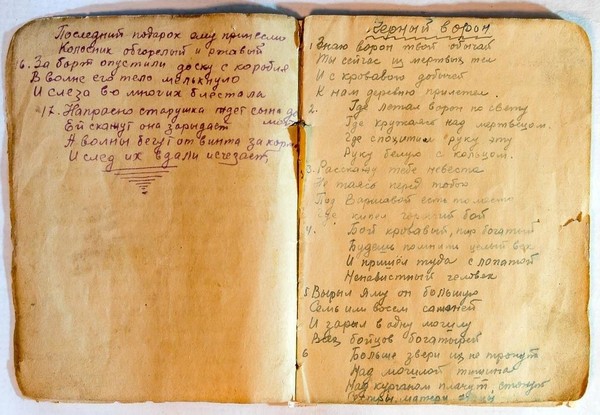 Последний подарок ему принесли
Колосник обгорелый и ржавый
16. За борт опустили доску с корабля
В волне его тело мелькнуло
И слеза во многих блястала
17. Напрасно старушка ждет сына до
мой
Ей скажут она зарыдает
А волны бегут от винта за кормой
И след их вдали исчезает
Черный ворон
1 Знаю ворон твой обычай
Ты сейчас из мертвых тел
И с кровавою добычей
К нам деревню прилетел
2. Где летал ворон по свету
Где кружился над мертвецом
Где споцитил руку эту
Руку белую с кольцом.
3. Расскажу тебе невеста
Не таясь перед тобой
Под Варшавой есть то место
Где кипел горячий бой
4. Бой кровавый, пир богатый
Будешь помнить целый век
И пришёл туда с лопатой
Ненавистный человек
5 Вырыл яму он большую
Семь или восем саженей
И зарыл в одну могилу
Всех бойцов богатырей
6 Больше звери их не тронут
Над могилой тишина
Над курганом плачут, стонут
матери